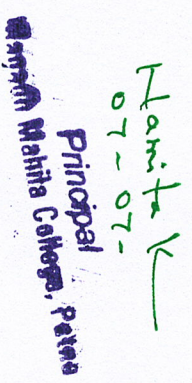 Harita K
07-07-
Principal
Mahila College, Patna